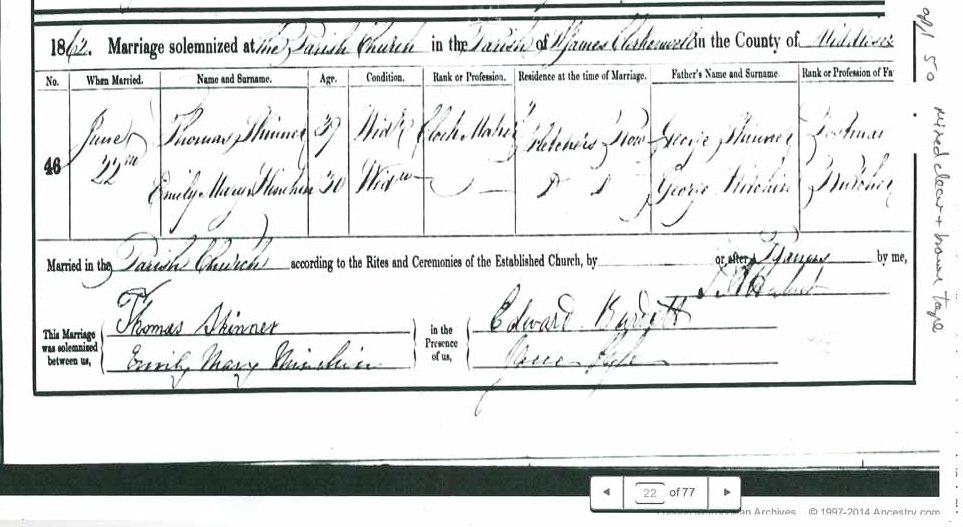 1862. Marriage solemnized at the Parish Church in the Parish of St James Clerkenwell in the County of Middlesex
No. When Married. Name and Surname. Age. Condition. Rank or Profession. Residence at the time of Marriage. Father's Name and Surname. Rank or Profession of Fa
46 June 22nd
Thomas Skinner 39 Widr Clock Maker Fletchers Row George Skinner Postman
Emily Mary Minchin 30 Widw — George Kitchin Butcher
Married in the Parish Church according to the Rites and Ceremonies of the Established Church, by or after Banns by me,
This Marriage was solemnized between us,
Thomas Skinner
Emily Mary Minchin
in the Presence of us,
Edward
Jane
opl 50 mixed clear + brown tape
22 of 77
Archives © 1997-2014 Ancestry.com